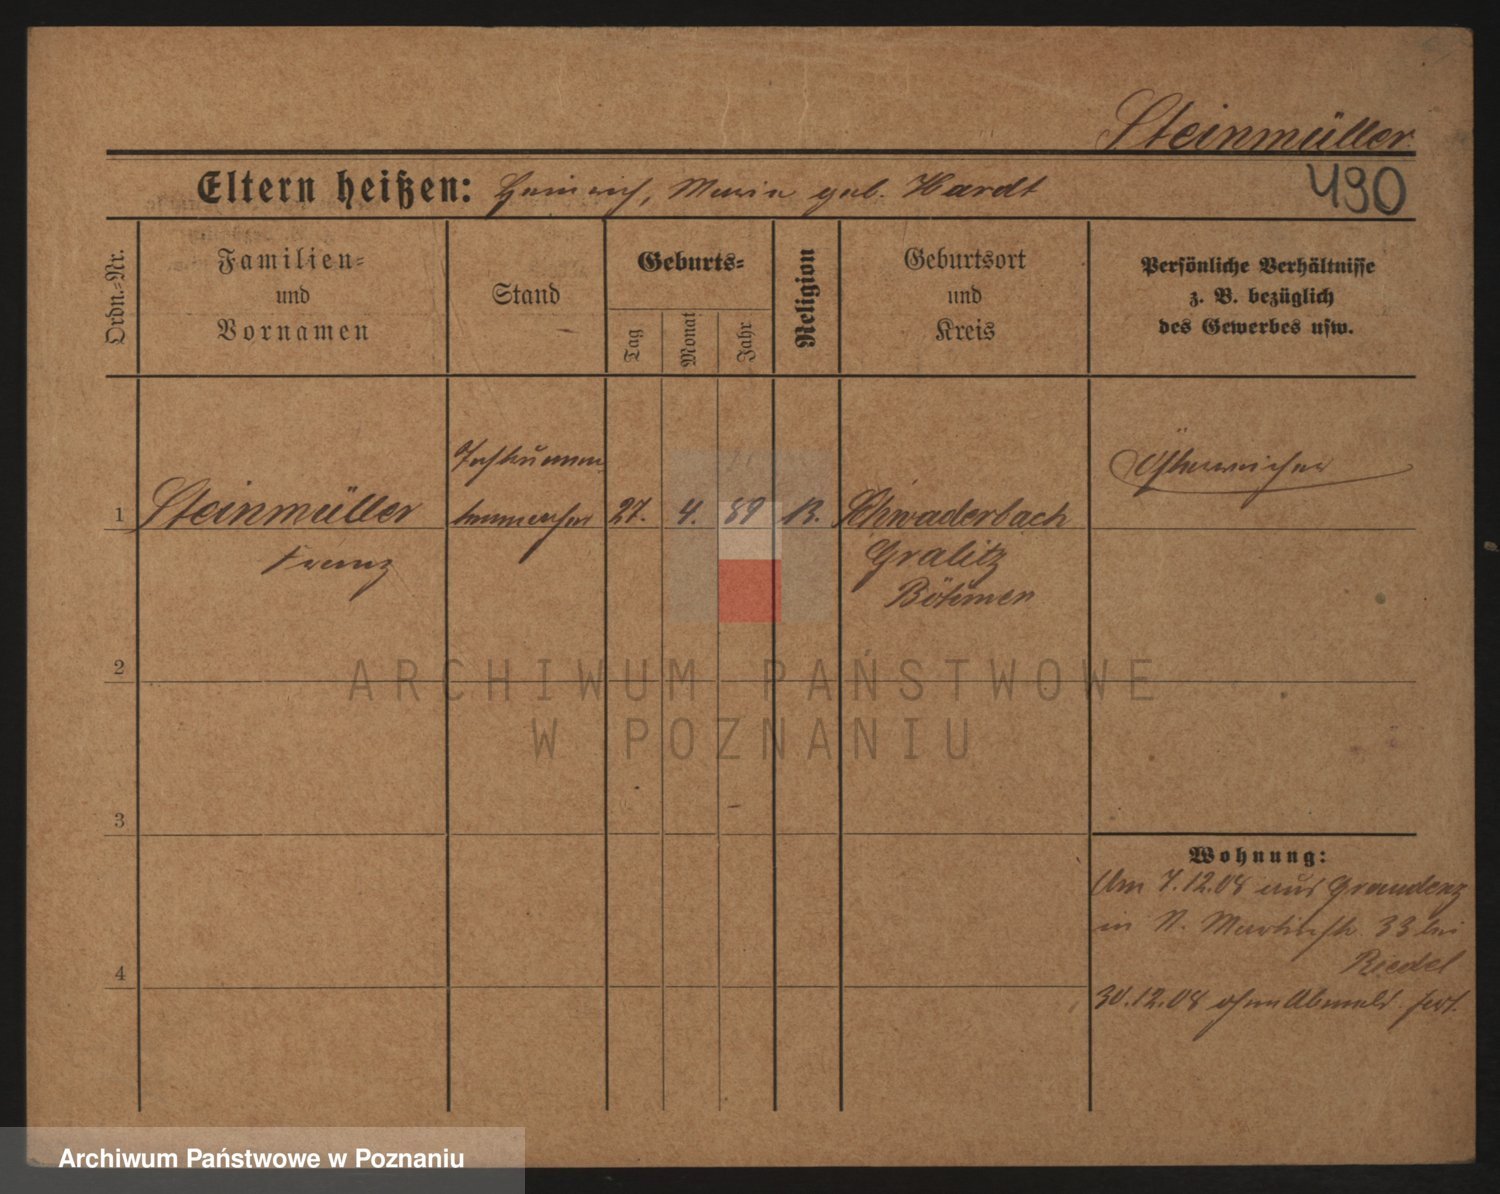 Steinmüller
Eltern heißen: Heinrich, Maria geb. Hardt
490
Ordn.-Nr.
Familien-
und
Vornamen
Stand
Geburts-
Tag
Monat
Jahr
Religion
Geburtsort
und
Kreis
Persönliche Verhältnisse
z. B. bezüglich
des Gewerbes usw.
1
Steinmüller
Franz
27. 4. 89
Schwaderbach
Gralitz
Böhmen
Österreicher
2
3
4
Wohnung:
Am 7.12.08 aus Graudenz
in St. Martinstr. 33 bei
Riedel
30.12.08 ohne Abmeld. fort.
ARCHIWUM PAŃSTWOWE
W POZNANIU
Archiwum Państwowe w Poznaniu